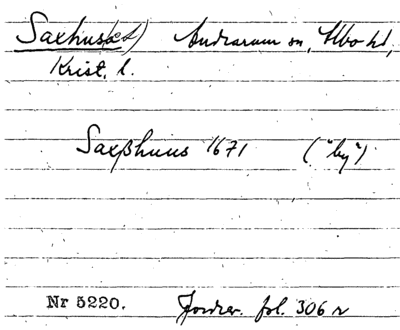 Saxhus(et) Andrarum sn, Albo hd,
Krist. l.
Saxßhuus 1671 ("by")
Nr 5220. Jordrev. fol. 306 v